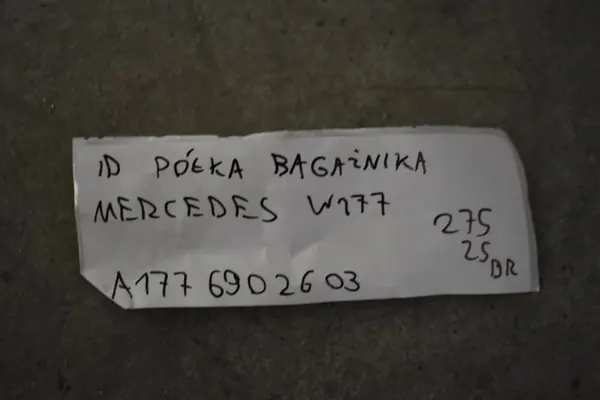 ID PÓŁKA BAGAŻNIKA
MERCEDES W177
275
25
BR
A177 690 26 03